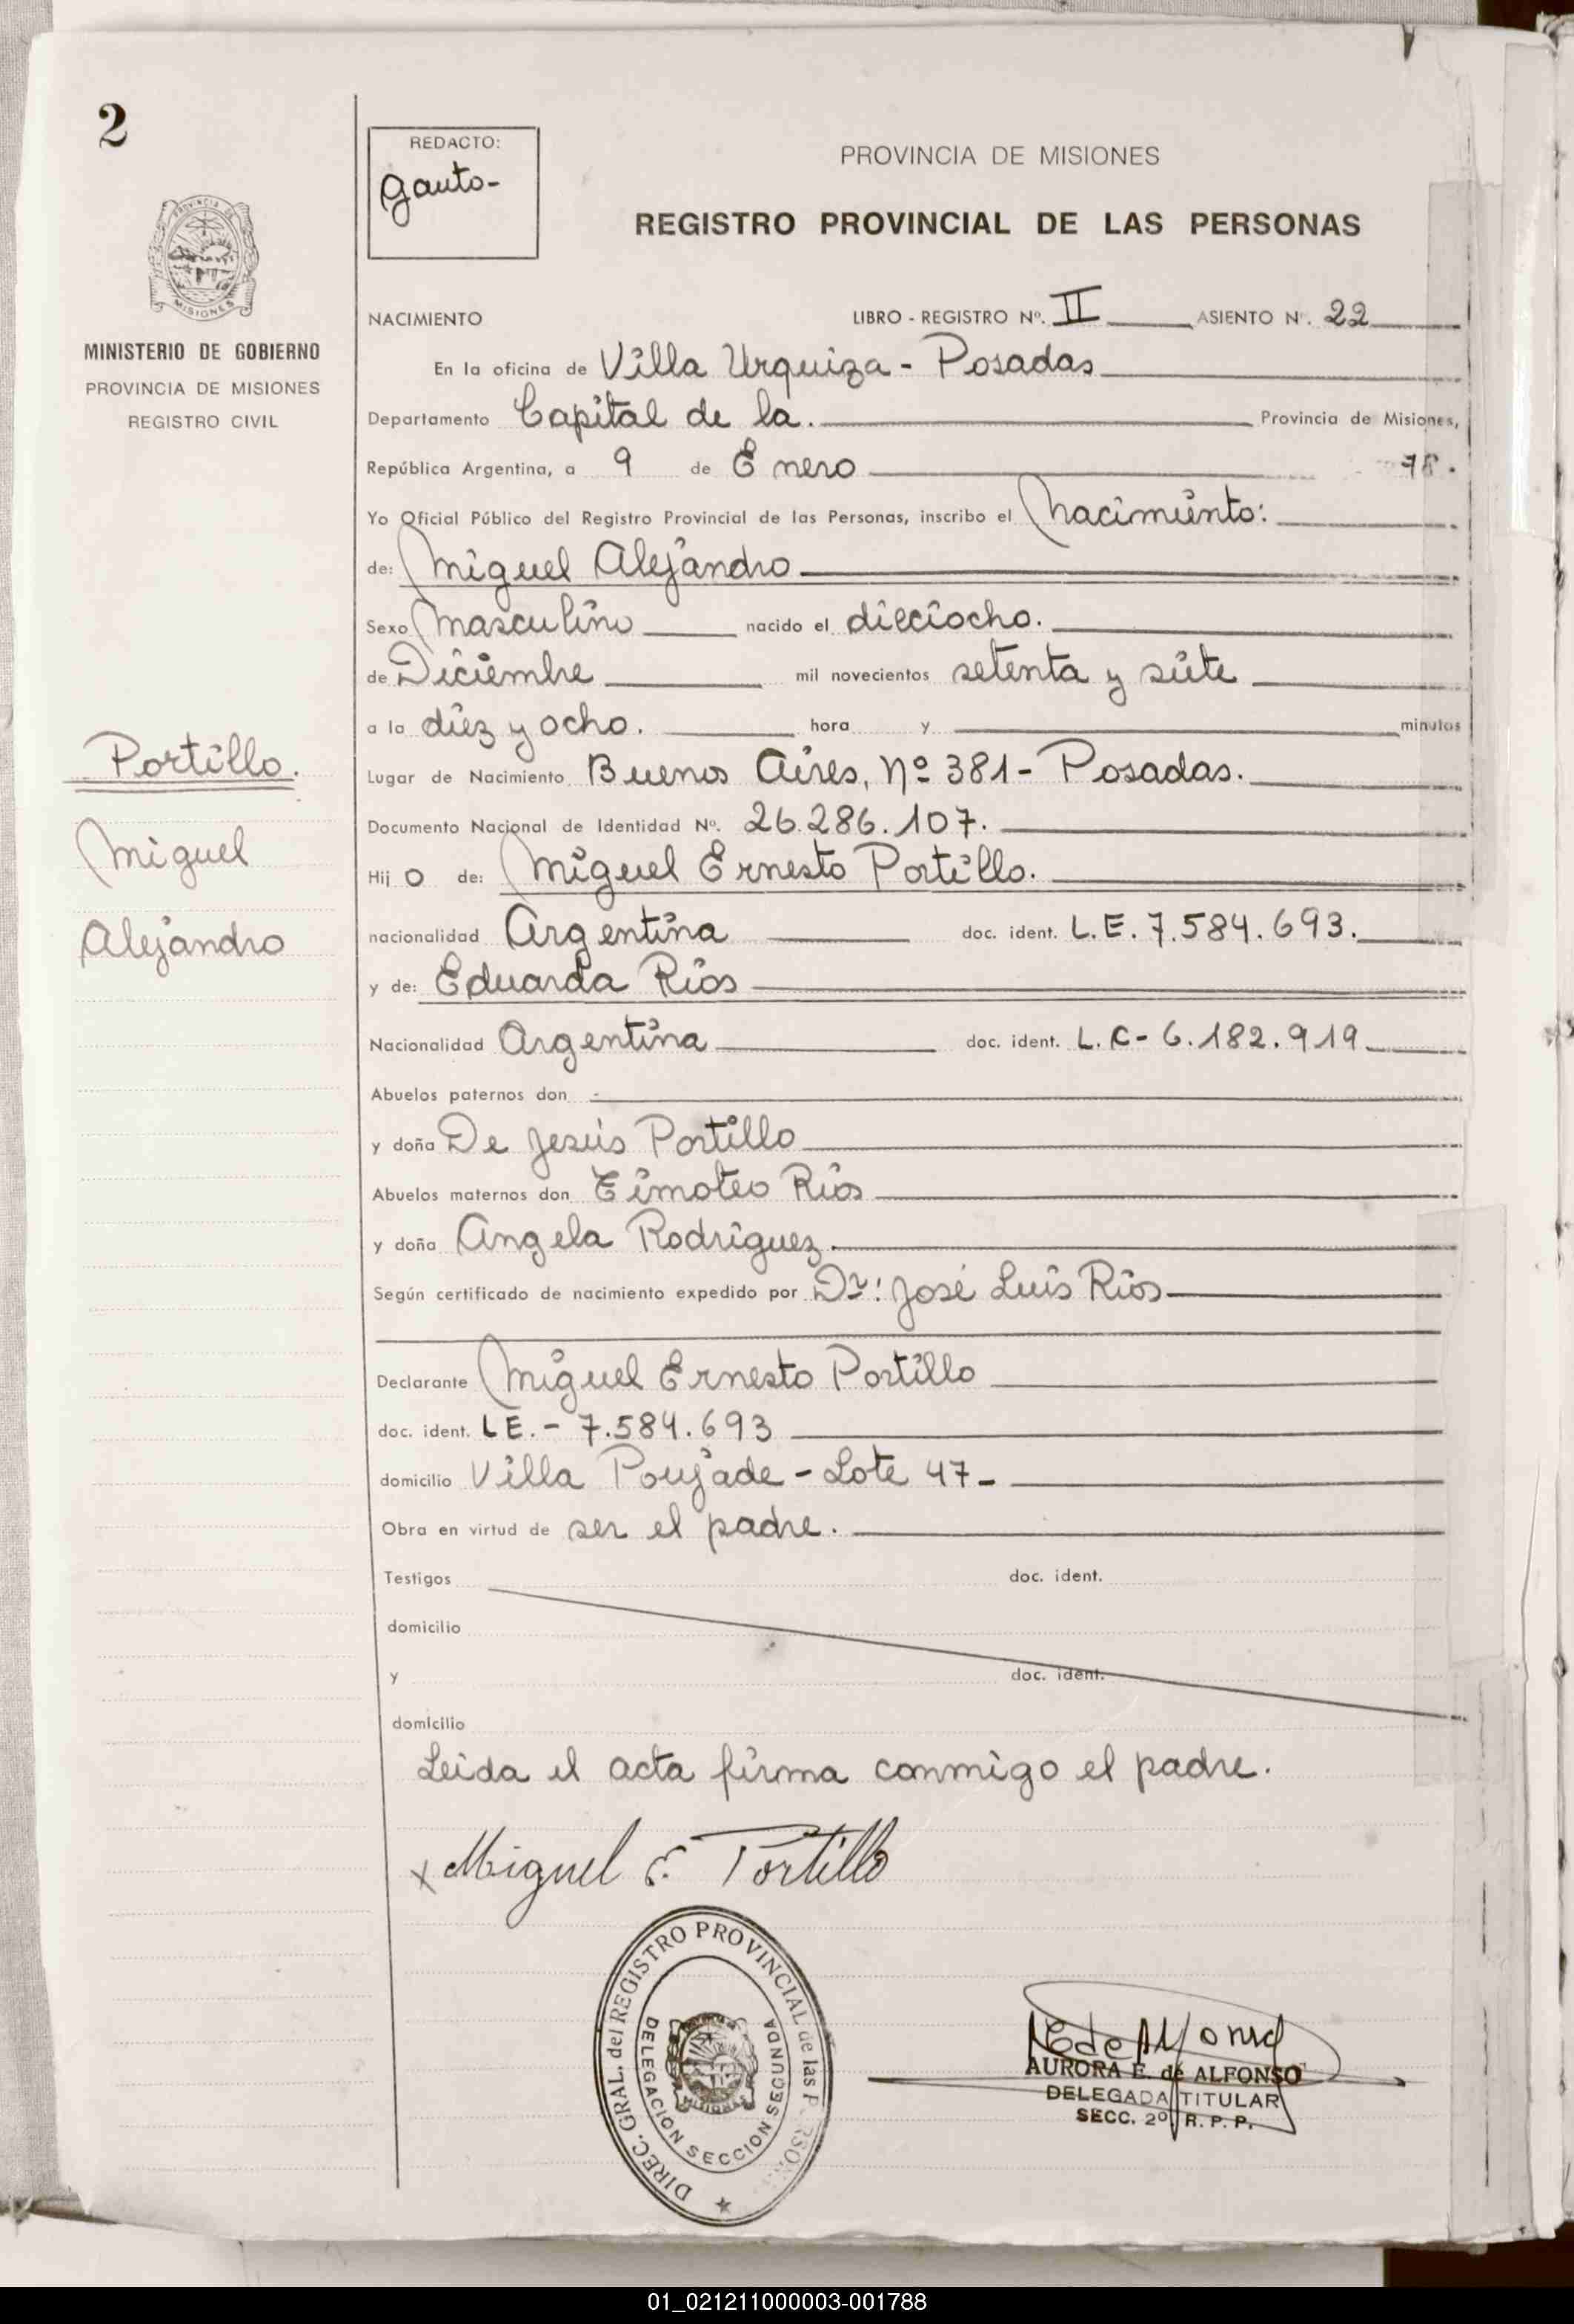 2
REDACTO:
Gauto-
PROVINCIA DE MISIONES
REGISTRO PROVINCIAL DE LAS PERSONAS
PROVINCIA DE
MISIONES
MINISTERIO DE GOBIERNO
PROVINCIA DE MISIONES
REGISTRO CIVIL
NACIMIENTO LIBRO - REGISTRO Nº. II ASIENTO Nº. 22
En la oficina de Villa Urquiza - Posadas
Departamento Capital de la. Provincia de Misiones,
República Argentina, a 9 de Enero 78.
Yo Oficial Público del Registro Provincial de las Personas, inscribo el Nacimiento:
de: Miguel Alejandro
Sexo Masculino nacido el dieciocho.
de Diciembre mil novecientos setenta y siete
a la diez y ocho. hora y minutos
Lugar de Nacimiento Buenos Aires, Nº 381 - Posadas.
Documento Nacional de Identidad Nº. 26.286.107.
Hij o de: Miguel Ernesto Portillo.
nacionalidad Argentina doc. ident. L.E. 7.584.693.
y de: Eduarda Rios
Nacionalidad Argentina doc. ident. L.C- 6.182.919
Abuelos paternos don -
y doña De Jesús Portillo
Abuelos maternos don Timoteo Rios
y doña Angela Rodriguez.
Según certificado de nacimiento expedido por Dr: José Luis Rios
Declarante Miguel Ernesto Portillo
doc. ident. LE. - 7.584.693
domicilio Villa Poujade - Lote 47-
Obra en virtud de ser el padre.
Testigos doc. ident.
domicilio
y doc. ident.
domicilio
Leida el acta firma conmigo el padre.
Portillo.
Miguel
Alejandro
x Miguel E. Portillo
DIREC. GRAL. del REGISTRO PROVINCIAL de las
DELEGACION SECCION SECUNDA
AURORA E. de ALFONSO
DELEGADA TITULAR
SECC. 2º R. P. P.
01_021211000003-001788